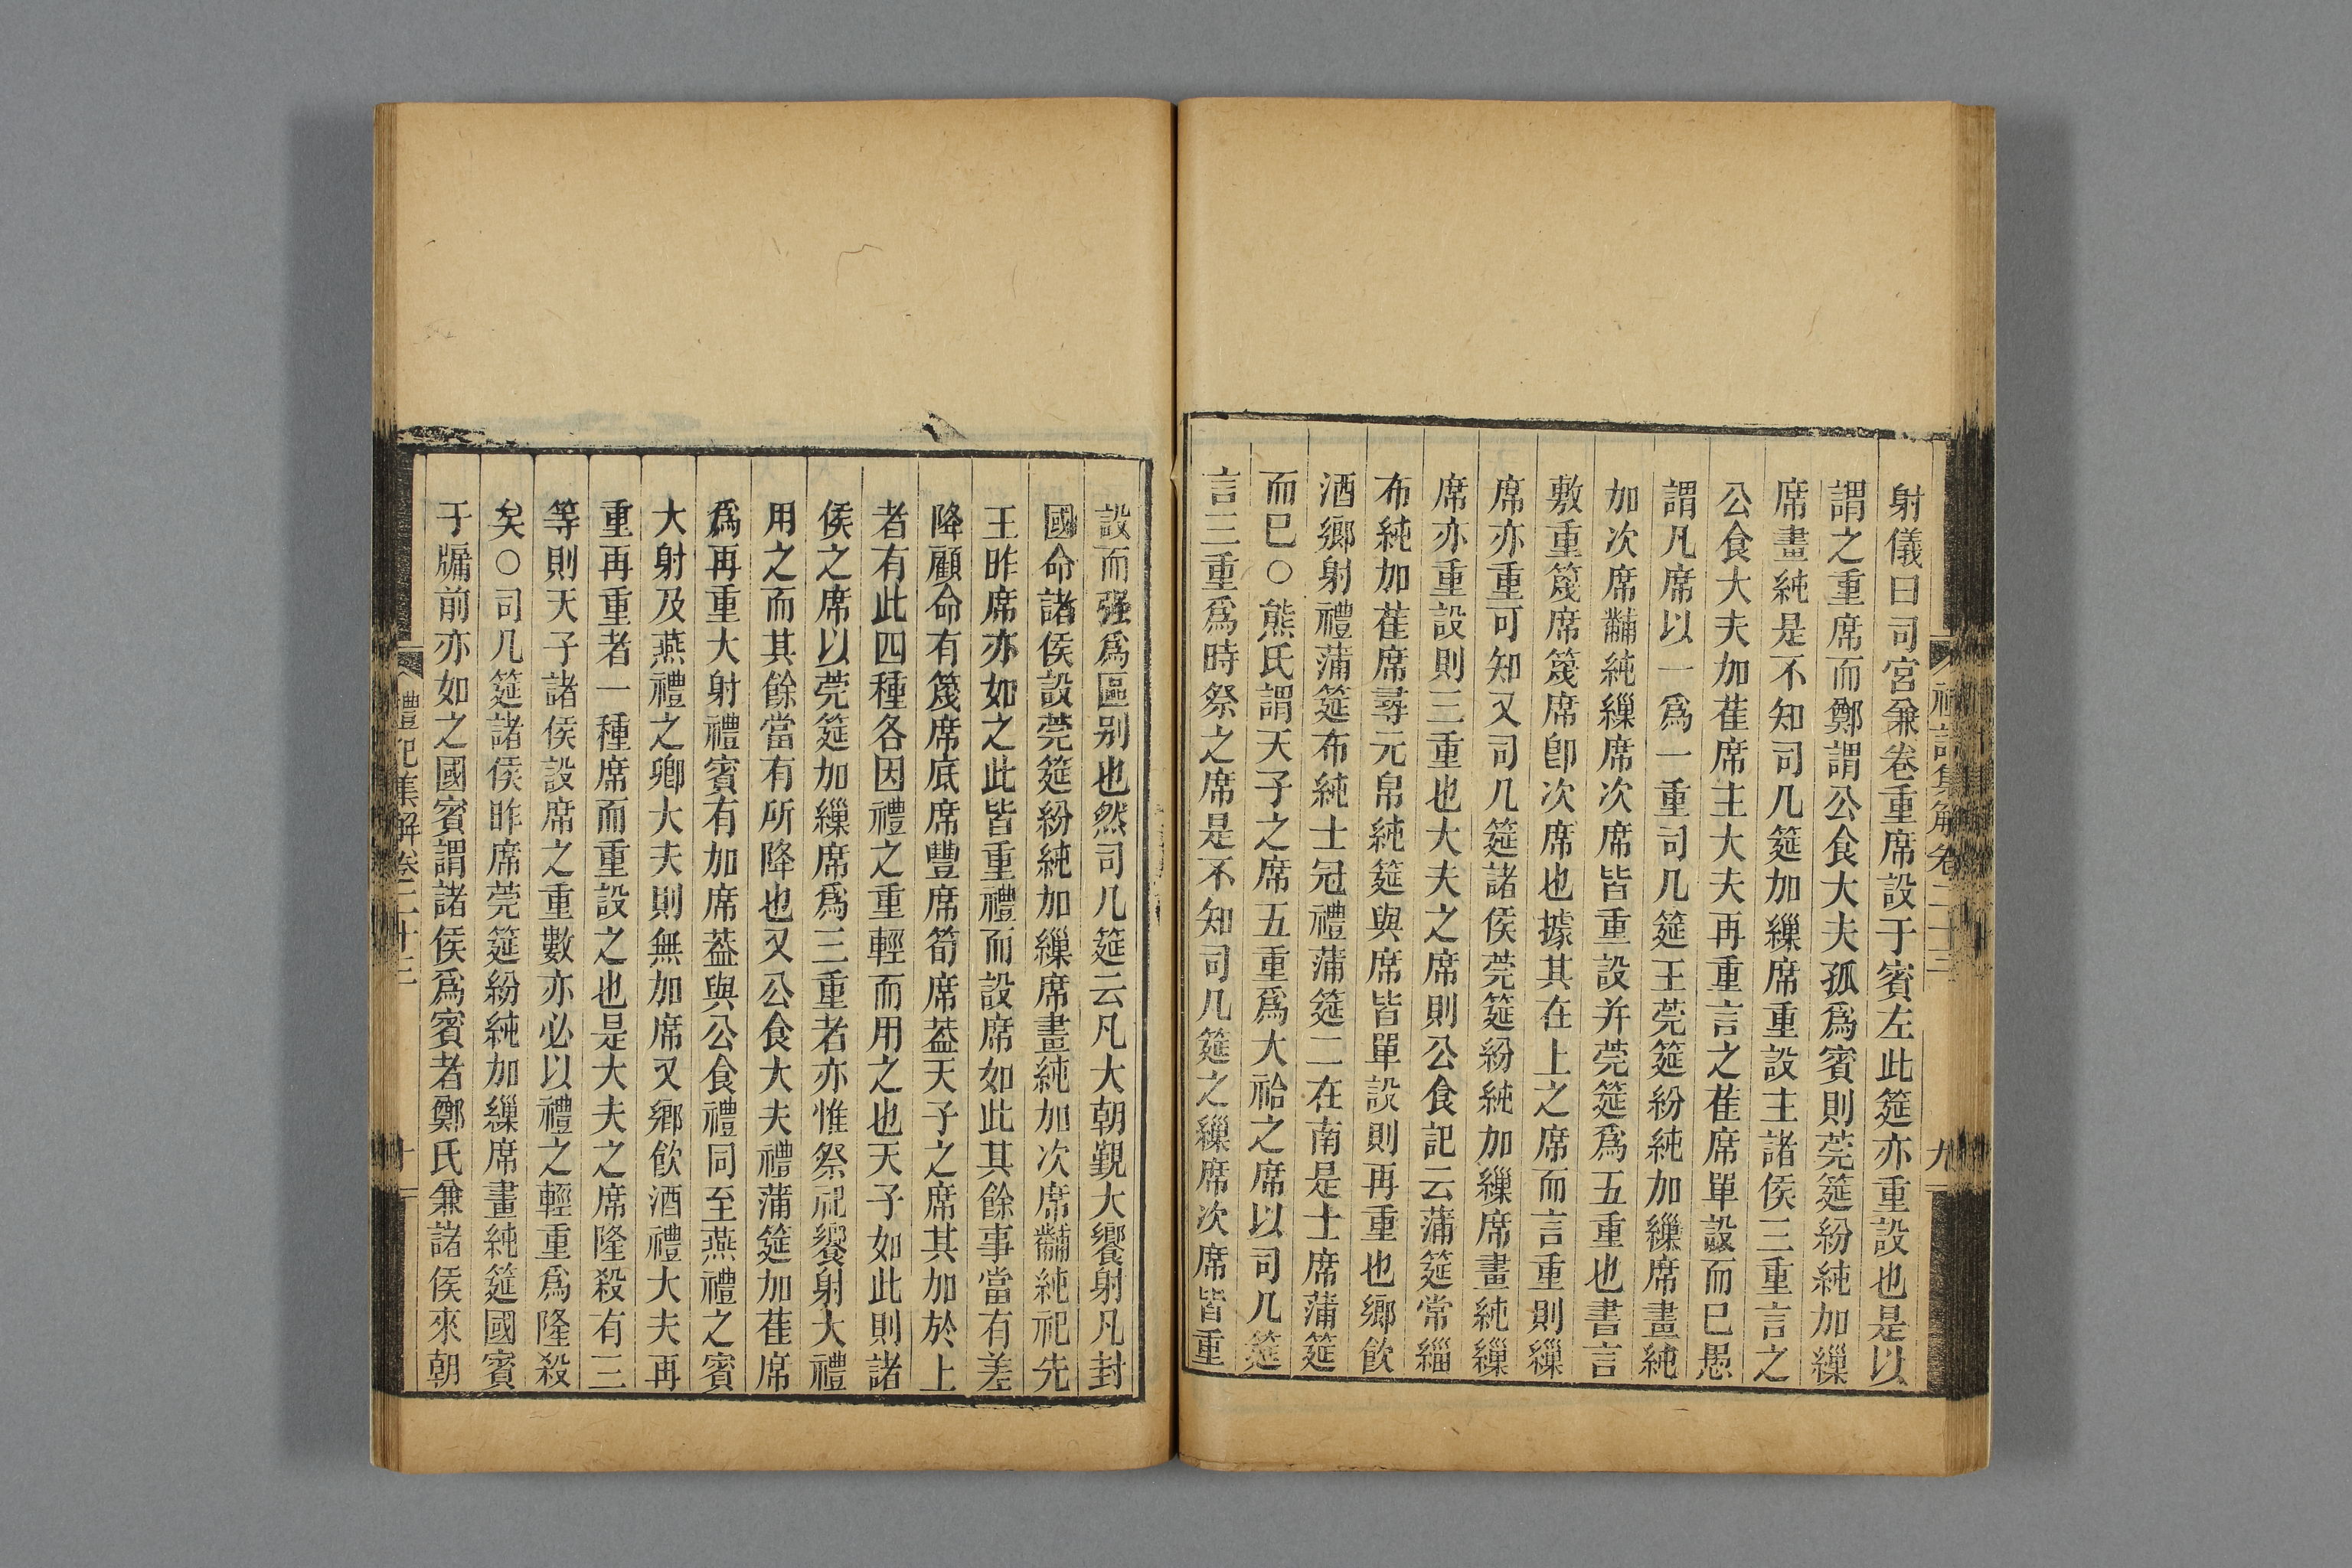 射儀曰司宮兼卷重席設于賓左此筵亦重設也是以
謂之重席而鄭謂公食大夫孤爲賓則莞筵紛純加繅
席畫純是不知司几筵加繅席重設主諸侯三重言之
公食大夫加萑席主大夫再重言之萑席單設而已愚
謂凡席以一爲一重司几筵王莞筵紛純加繅席畫純
加次席黼純繅席次席皆重設并莞筵爲五重也書言
敷重篾席篾席卽次席也據其在上之席而言重則繅
席亦重可知又司几筵諸侯莞筵紛純加繅席畫純繅
席亦重設則三重也大夫之席則公食記云蒲筵常緇
布純加萑席尋元帛純筵與席皆單設則再重也鄉飮
酒鄉射禮蒲筵布純士冠禮蒲筵二在南是士席蒲筵
而已○熊氏謂天子之席五重爲大祫之席以司几筵
言三重爲時祭之席是不知司几筵之繅席次席皆重
禮記集解卷二十三
九
設而强爲區别也然司几筵云凡大朝覲大饗射凡封
國命諸侯設莞筵紛純加繅席畫純加次席黼純祀先
王昨席亦如之此皆重禮而設席如此其餘事當有差
降顧命有篾席底席豐席筍席葢天子之席其加於上
者有此四種各因禮之重輕而用之也天子如此則諸
侯之席以莞筵加繅席爲三重者亦惟祭祀饗射大禮
用之而其餘當有所降也又公食大夫禮蒲筵加萑席
爲再重大射禮賓有加席葢與公食禮同至燕禮之賓
大射及燕禮之卿大夫則無加席又鄉飮酒禮大夫再
重再重者一種席而重設之也是大夫之席隆殺有三
等則天子諸侯設席之重數亦必以禮之輕重爲隆殺
矣○司几筵諸侯昨席莞筵紛純加繅席畫純筵國賓
于牖前亦如之國賓謂諸侯爲賓者鄭氏兼諸侯來朝
禮記集解卷二十三
十